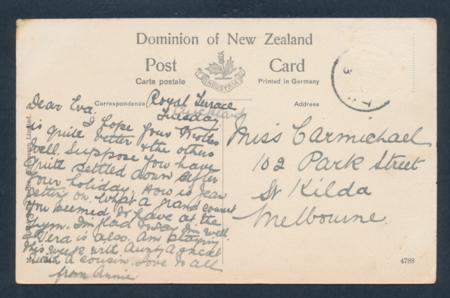 Dominion of New Zealand
Post Card
Carte postale
Printed in Germany
Correspondence
Address
Royal Terrace
Tuesday
Dear Eva,
I hope your Mother
is quite better & the others
well. Suppose you have
quite settled down after
your holiday. How is
getting on. What a grand
you seemed to have at the
I'm well
Vera is also. Am staying
this week with Aunty A
a cousin. Love to all
from Annie
Miss Carmichael
102 Park Street
St Kilda
Melbourne
4788